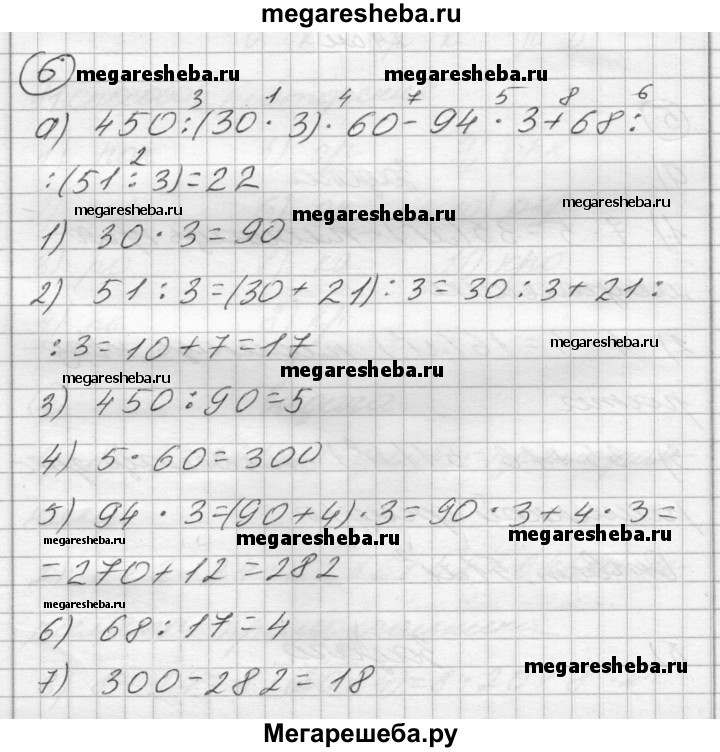 megaresheba.ru
6 megaresheba.ru megaresheba.ru
3 1 4 7 5 8 6
а) 450:(30 · 3) · 60 - 94 · 3 + 68 :
2
: (51 : 3) = 22
megaresheba.ru megaresheba.ru megaresheba.ru
1) 30 · 3 = 90
2) 51 : 3 = (30 + 21) : 3 = 30 : 3 + 21 :
: 3 = 10 + 7 = 17
megaresheba.ru megaresheba.ru megaresheba.ru
3) 450 : 90 = 5
4) 5 · 60 = 300
5) 94 · 3 = (90 + 4) · 3 = 90 · 3 + 4 · 3 =
megaresheba.ru megaresheba.ru megaresheba.ru
= 270 + 12 = 282
megaresheba.ru
6) 68 : 17 = 4
7) 300 - 282 = 18
megaresheba.ru
Мегарешеба.ру